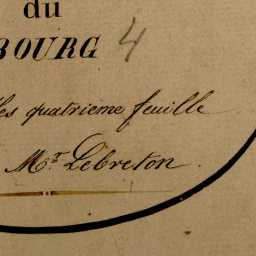 du
BOURG 4
des quatrieme feuille
Mr. Lebreton.